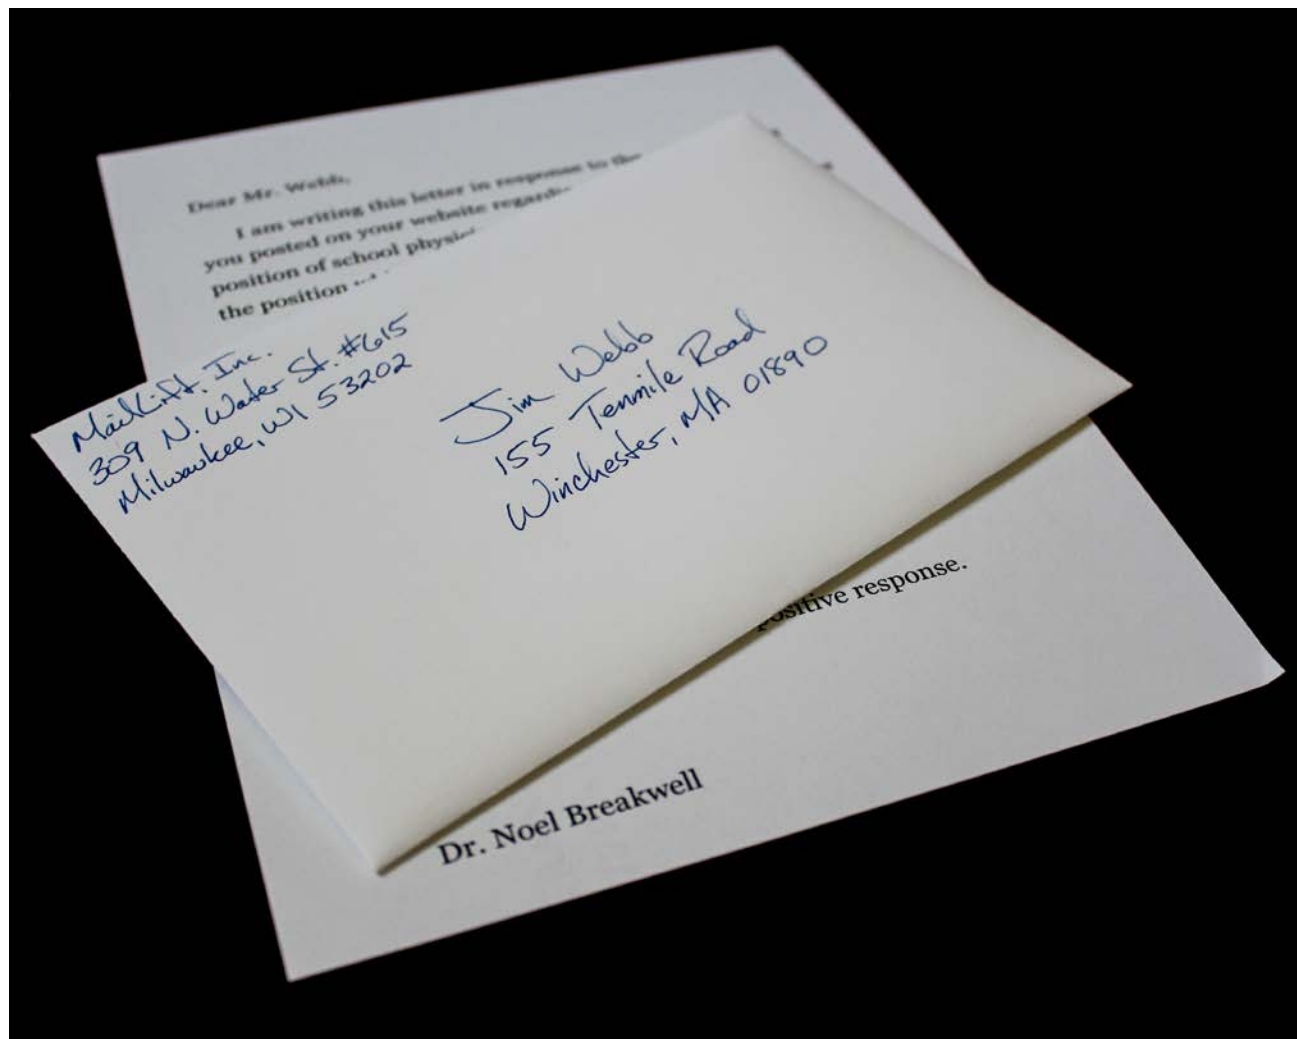 Dear Mr. Webb,
I am writing this letter in response to the
you posted on your website
position of school
the position
MailLift, Inc.
309 N. Water St. #615
Milwaukee, WI 53202
Jim Webb
155 Tenmile Road
Winchester, MA 01890
positive response.
Dr. Noel Breakwell